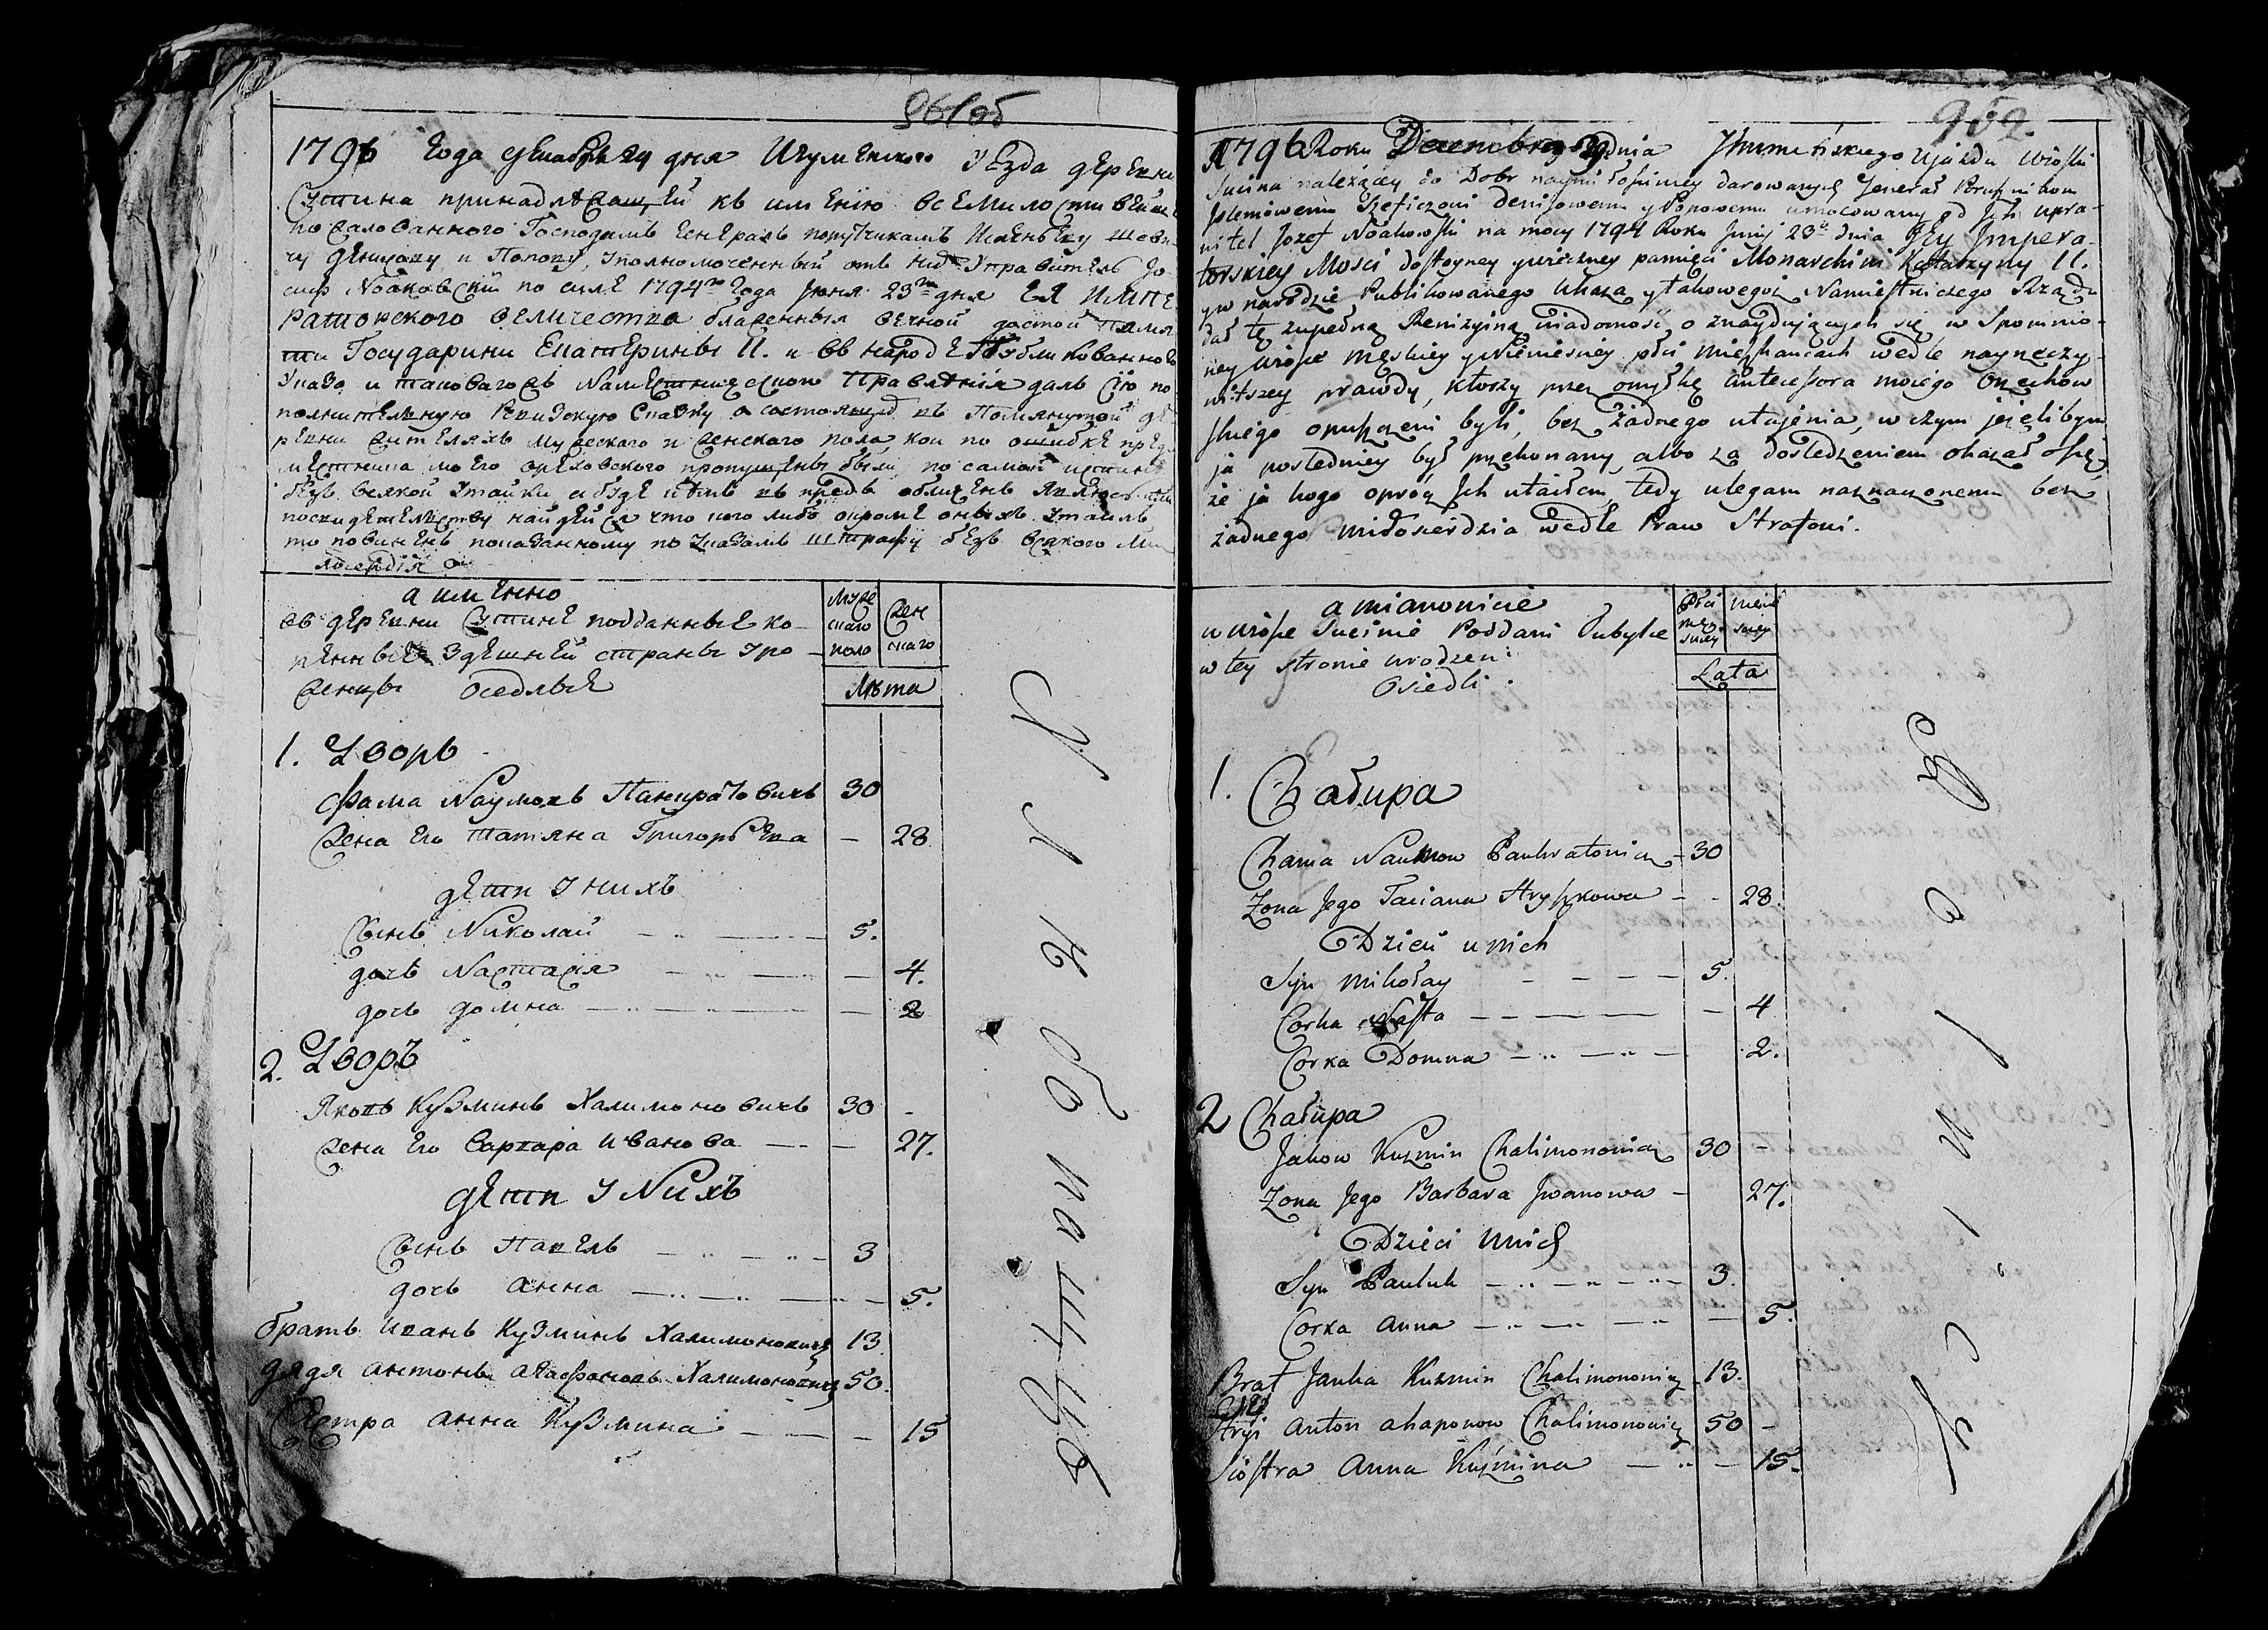 961об
1796 Года декабря 29 дня Игуменского Уезда деревни
Сутина принадлежащей къ имению всемилостивейше
пожалованного Господамъ Генералъ порутчикамъ Ислѣньеву Шеви
чу Денисову и Попову, Уполномоченный отъ нихъ Управитель Іо
сифъ Ноаковский по силе 1794го Года Июня 23го дня ЕЯ ИМПЕ
РАТОРСКОГО величества блаженныя вечной достой памя
ти Государини Екатерины II. и въ народе Публикованного
Указа и таковагожъ Наместнического Правления далъ сию по
полнительную Ревизскую Сказку о состоящихъ въ Помянутой де
ревни жителяхъ мужеского и женского пола кои по ошибке пред
местника моего Ореховского пропущены были по самой истине
безъ всякой Утайки а буде я въ томъ въ предъ обличенъ
посвидетельству найдется что кого либо окроме оныхъ Утаилъ
то повиненъ показанному по Указамъ штрафу безъ всякого Ми
лосердія
а именно
въ деревни Сутине подданные ко-
ренные Здешней страны Уро-
женцы оседлые
Муже
скаго
пола
Жен
скаго
Лѣта
1. Дворъ
Фама Наумовъ Панкратовичъ 30
Жена Его Татяна Григорьева — 28
дети У нихъ
Сынъ Николай 5.
дочь Настасія — 4.
дочь домна — 2
2. Дворъ
Яковъ Кузминъ Халимоновичъ 30 -
Жена Его Варвара Иванова — 27.
дети У Нихъ
Сынъ Павелъ 3
дочь Анна — 5.
братъ Иванъ Кузминъ Халимоновичъ 13
дядя Антонъ Агафоновъ Халимоновичъ 50.
Сестра Анна Кузмина — 15
962.
1796 Roku Decembra 29 dnia Jhumeńskiego Ujazdu wioski
Sucina należącey do Dobr naymiłościwiey darowanych Jenerał Poruʃznikom
Jsleniowemu Szewiczowi Denisowemu y Popowemu umocowany od Jch upra-
witel Jozef Noakowski na mocy 1794 Roku Junij 23o dnia Jey Jmpera-
torskiey Mosci dostoyney y wieczney pamięci Monarchini Katarzyny II.
y w narodzie Publikowanego Ukaza y takowegoż Namiestniczego Rządu
dał tę zupełną Rewizyiną wiadomość o znaydujących się w Spomnio-
ney wiosce męskiey y Niewiesciey płci mieszkancach wedle nayrzeczy-
witszey prawdy, ktorzy przez omyłkę Antecessora moiego Orzechow
skiego opuszczeni byli, bez żadnego utajenia, w czym jeżelibym
ja posledniey był przekonany, albo za dosledzeniem okazało się
że ja kogo oprócz Jch utaiłem, tedy ulegam naznaczonemu bez
żadnego miłosierdzia wedle Praw Strafowi.
a mianowicie
w wiosce Sucinie Poddani Tubylce
w tey stronie urodzeni
Osiedli.
Płci
męs
kiey
niewie
skiey
Lata
1. Chałupa
Chama Naumow Pankratowicz - 30
Żona Jego Taciana Hryszkowa - - 28.
Dzieci u nich
Syn Mikołay 5.
Corka Nasta - 4
Corka Domna 2.
2 Chałupa
Jakow Kuzmin Chalimonowicz 30 -
Żona Jego Barbara Jwanowa - 27.
Dzieci u nich
Syn Pauluk 3.
Corka Anna — 5.
Brat Janka Kuzmin Chalimonowicz 13.
Stryi Anton Ahaponow Chalimonowicz 50 -
Siostra Anna Kuźmina — 15.